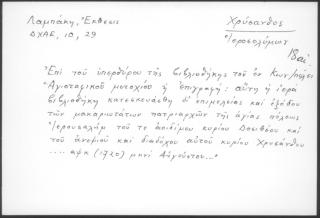 Λαμπάκη, Ἔκθεσις
ΔΧΑΕ, 10, 29
Χρύσανθος
Ἱεροσολύμων
Ἐπὶ τοῦ ὑπερθύρου τῆς βιβλιοθήκης τοῦ ἐν Κων/πόλει
Ἁγιοταφικοῦ μετοχίου ἡ ἐπιγραφή: αὕτη ἡ ἱερὰ
βιβλιοθήκη κατεσκευάσθη δι' ἐπιμελείας καὶ ἐξόδου
τῶν μακαριωτάτων πατριαρχῶν τῆς ἁγίας πόλεως
Ἱερουσαλὴμ τοῦ τε ἀοιδίμου κυρίου Δοσιθέου καὶ
τοῦ ἀνεψιοῦ καὶ διαδόχου αὐτοῦ κυρίου Χρυσάνθου
.... αψκ (1720) μηνὶ Αὐγούστου..."